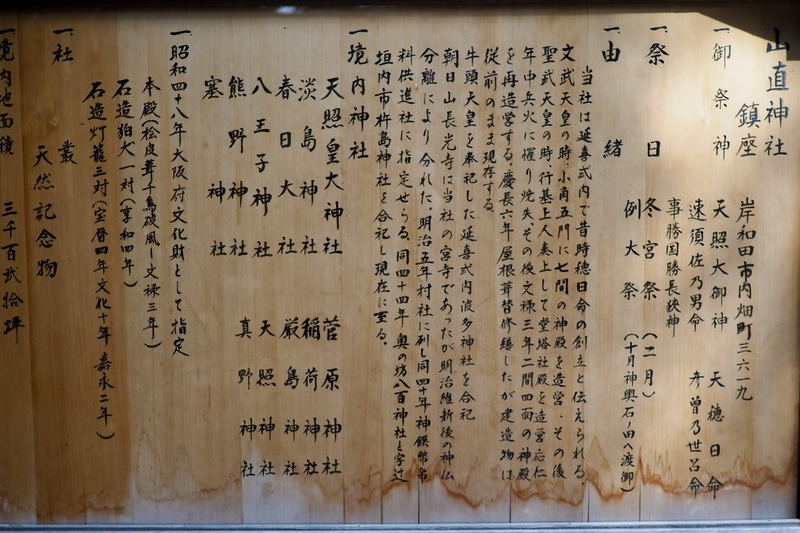 山直神社
鎮座 岸和田市内畑町三六一九
一、御祭神 天照大御神 天穂日命
速須佐乃男命 彦曽乃世呂命
事勝国勝長狭神
一、祭日 冬宮祭(二月)
例大祭(十月神輿石ノ田へ渡御)
一、由緒
当社は延喜式内で昔時穂日命の創立と伝えられる。
文武天皇の時、小角五門に七間の神殿を造営、その後
聖武天皇の時、行基上人奏上して堂塔社殿を造営応仁
年中兵火に罹り焼失その後文禄三年二間四面の神殿
を再造営する。慶長六年屋根葺替修繕したが建造物は
従前のまま現存する。
牛頭天皇を奉祀した延喜式内波多神社を合祀
朝日山長光寺は当社の宮寺であったが明治維新後の神仏
分離により分れた。明治五年村社に列し同四十年神饌幣帛
料供進社に指定せらる。同四十四年奥の坊八百神社と字辻
垣内市杵島神社を合祀し現在に至る。
一、境内神社
天照皇大神社 菅原神社
淡島神社 稲荷神社
春日大社 厳島神社
八王子神社 天照神社
熊野神社 真野神社
塞神社
一、昭和四十八年大阪府文化財として指定
本殿(桧皮葺千鳥破風—文禄三年)
石造狛犬一対(享和四年)
石造灯籠三対(宝暦四年文化十年 嘉永二年)
一、社叢 天然記念物
一、境内地面積 三千百弐拾坪